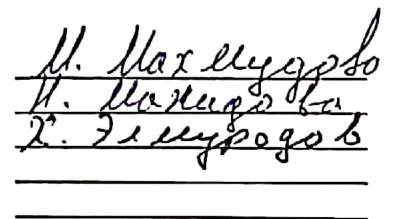 М. Махмудова
М. Мажидова
Х. Элмуродов